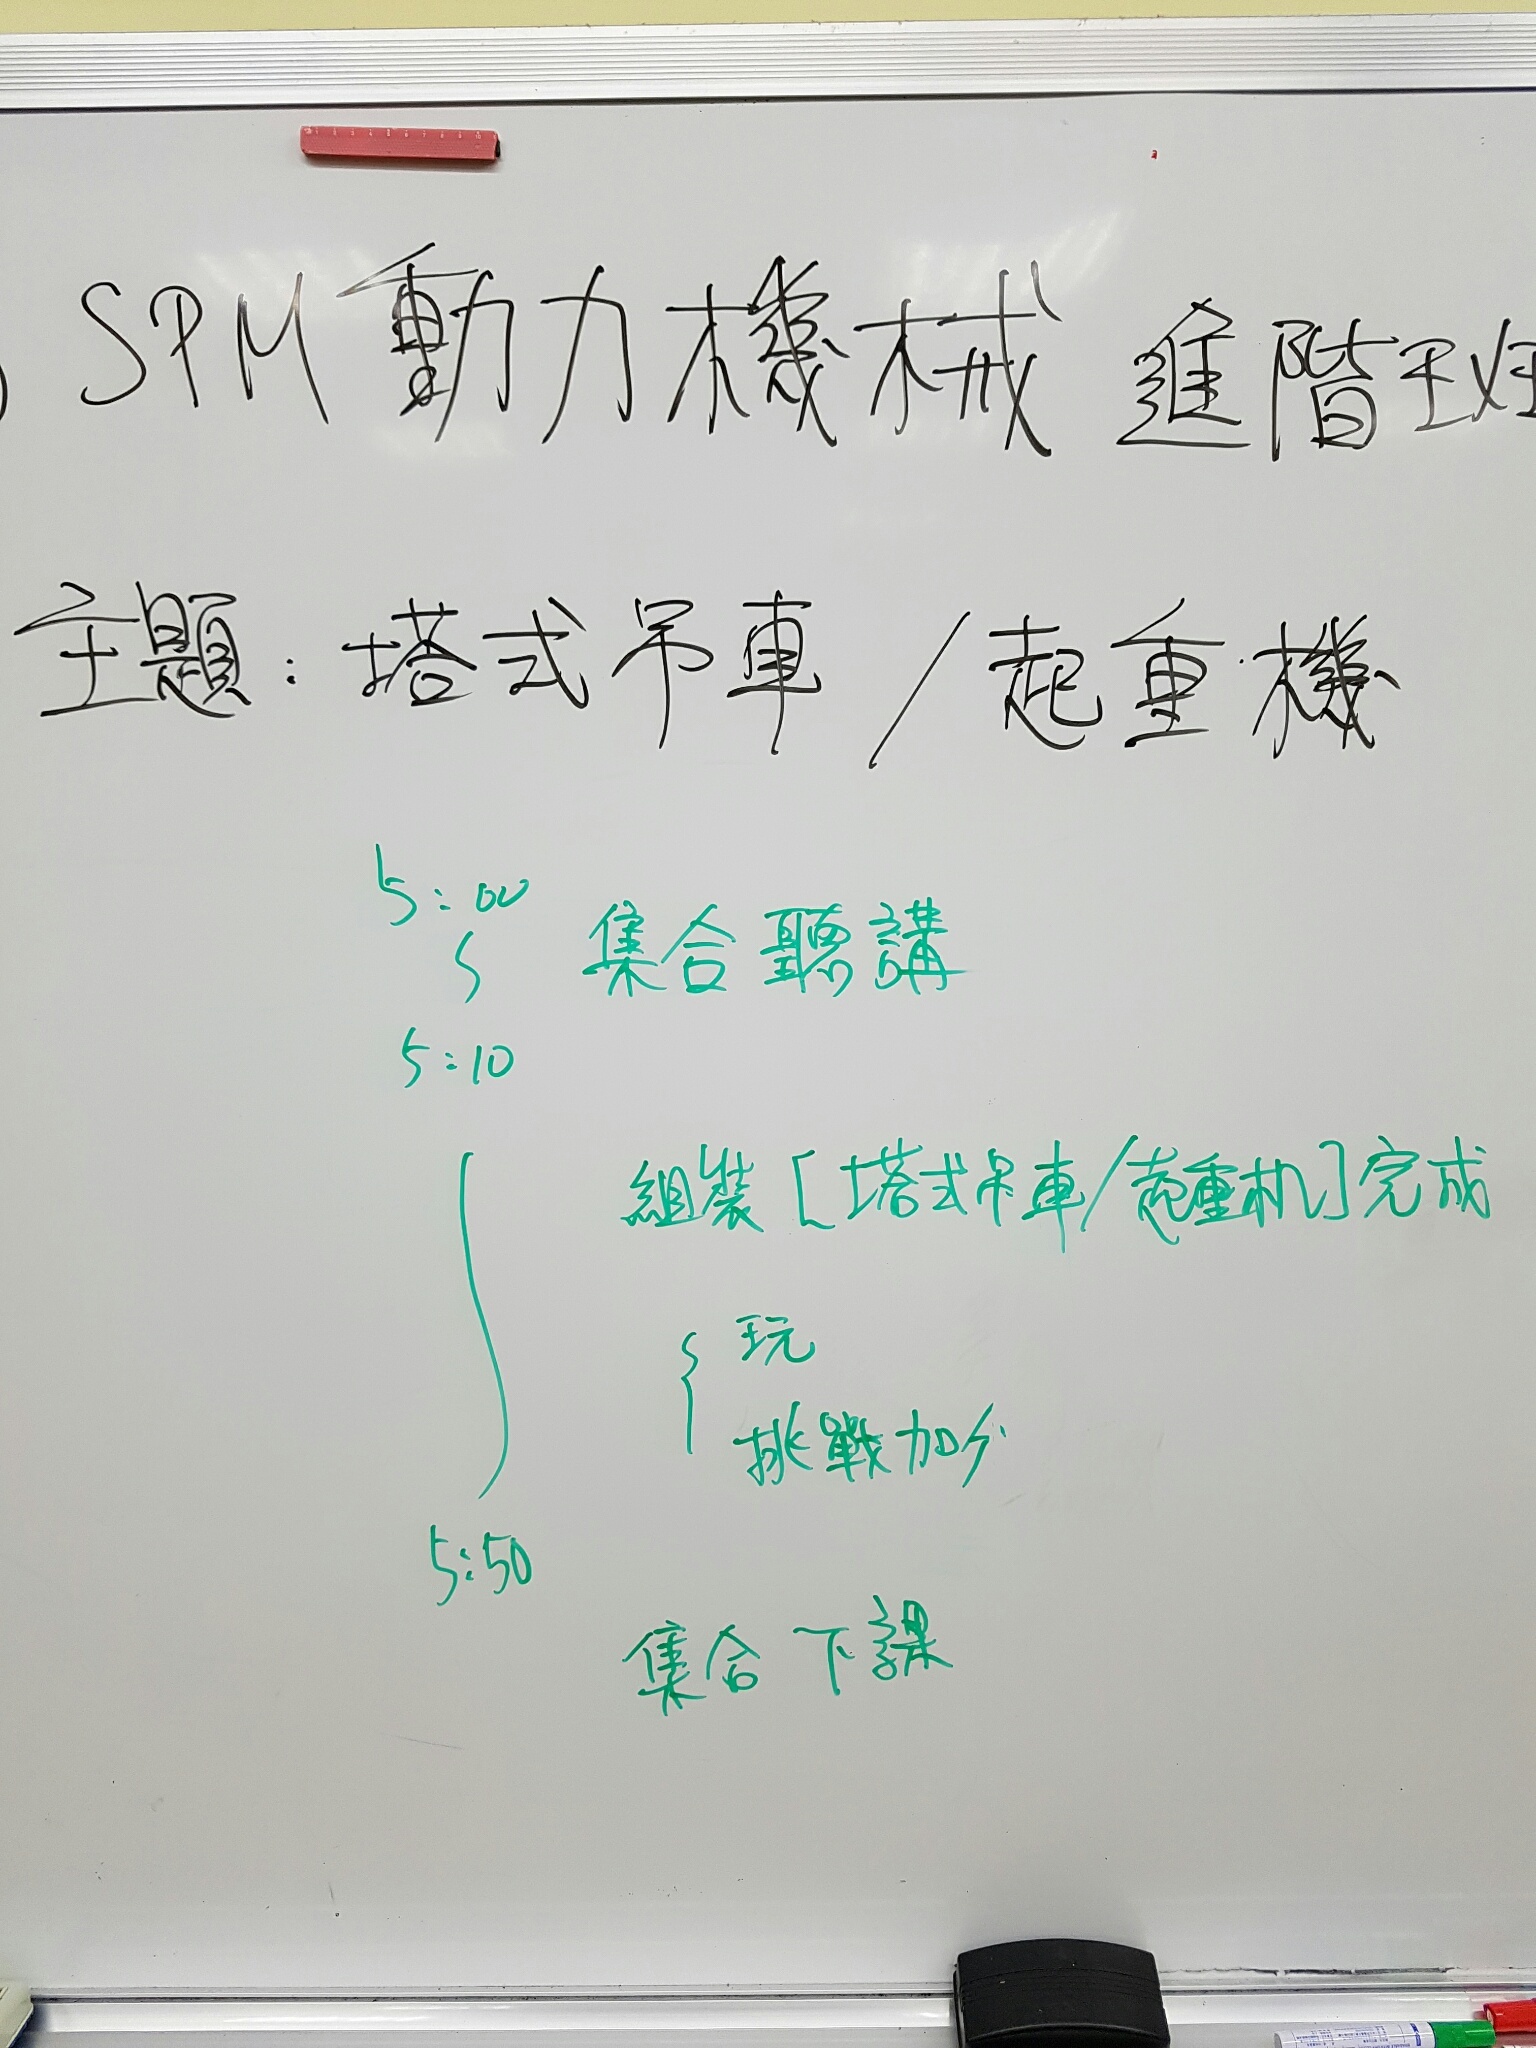 SPM動力機械 進階班
主題：塔式吊車/起重機
5:00
集合聽講
5:10
組裝[塔式吊車/起重机]完成
玩
挑戰加分
5:50
集合下課